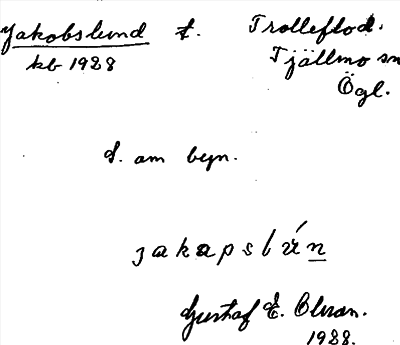 Jakobslund t. Trolleflod.
kb 1928 Tjällmo sn
Ögl.
d. om byn.
jakapslún
Gustaf E. Olsson.
1928.